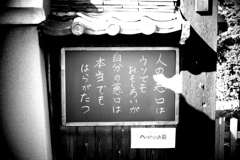 人の悪口は
ウソでも
おもしろいが
自分の悪口は
本当でも
はらがたつ